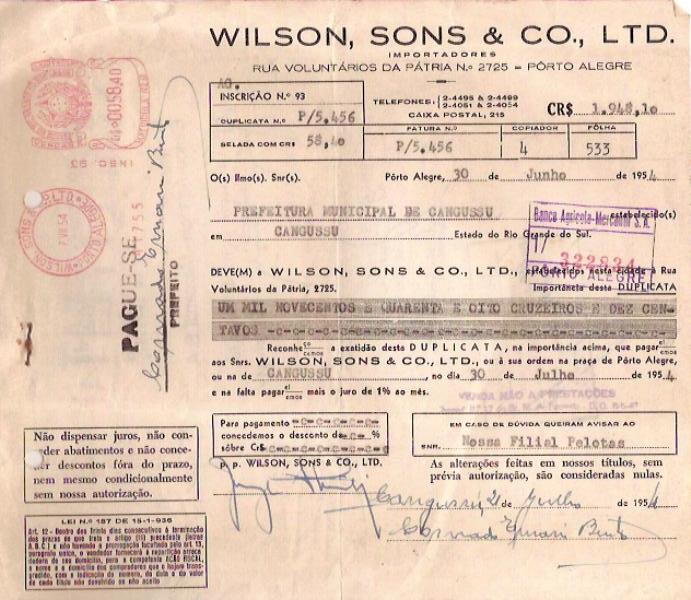 WILSON, SONS & CO., LTD.
IMPORTADORES
RUA VOLUNTÁRIOS DA PÁTRIA N.º 2725 = PÔRTO ALEGRE
AG.
INSCRIÇÃO N.º 93
DUPLICATA N.º P/5.456
SELADA COM CR$ 58,40
TELEFONES: 2-4495 & 2-4499
2-4051 & 2-4054
CAIXA POSTAL, 215
CR$ 1.948,10
FATURA N.º COPIADOR FÔLHA
P/5.456 4 533
O(s) Ilmo(s). Snr(s). Pôrto Alegre, 30 de Junho de 1954
PREFEITURA MUNICIPAL DE CANGUSSU estabelecido(s)
em CANGUSSU Estado do Rio Grande do Sul.
Banco Agricola-Mercantil S.A.
322834
PORTO ALEGRE
DEVE(M) a WILSON, SONS & CO., LTD., estabelecidos nesta cidade à Rua
Voluntários da Pátria, 2725. Importância desta DUPLICATA
UM MIL NOVECENTOS E QUARENTA E OITO CRUZEIROS E DEZ CEN-
TAVOS -c-c-c-c-c-c-c-c-c-c-c-c-c-c-c-c-c-c-
Reconhe ço/cemos a exatidão desta DUPLICATA, na importância acima, que pagar ei/emos
aos Snrs. WILSON, SONS & CO., LTD., ou à sua ordem na praça de Pôrto Alegre,
ou na de CANGUSSU, no dia 30 de Julho de 1954
e na falta pagar ei/emos mais o juro de 1% ao mês.
VENDA NÃO A PRESTAÇÕES
Para pagamento -c-c-c-c-c-c-
concedemos o desconto de -c-c- %
sôbre Cr$ -c-c-c-c-c-c-c-
p. p. WILSON, SONS & CO., LTD.
EM CASO DE DÚVIDA QUEIRAM AVISAR AO
SNR. Nossa Filial Pelotas
As alterações feitas em nossos títulos, sem
prévia autorização, são consideradas nulas.
Cangussú, 21 de Julho de 1954
Conrado Ernani Bento
Não dispensar juros, não con-
ceder abatimentos e não conce-
der descontos fóra do prazo,
nem mesmo condicionalmente
sem nossa autorização.
LEI N.º 187 DE 15-1-936
0058,40
INSC. 93
WILSON SONS & CO. LTD. PORTO ALEGRE
7 VII 54
PAGUE-SE
755
Conrado Ernani Bento
PREFEITO